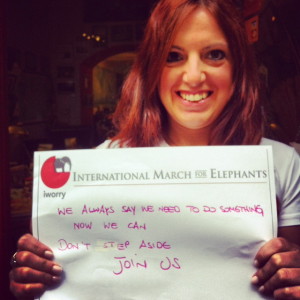 INTERNATIONAL MARCH FOR ELEPHANTS
iworry
WE ALWAYS SAY WE NEED TO DO SOMETHING
NOW WE CAN
DON'T STEP ASIDE
JOIN US